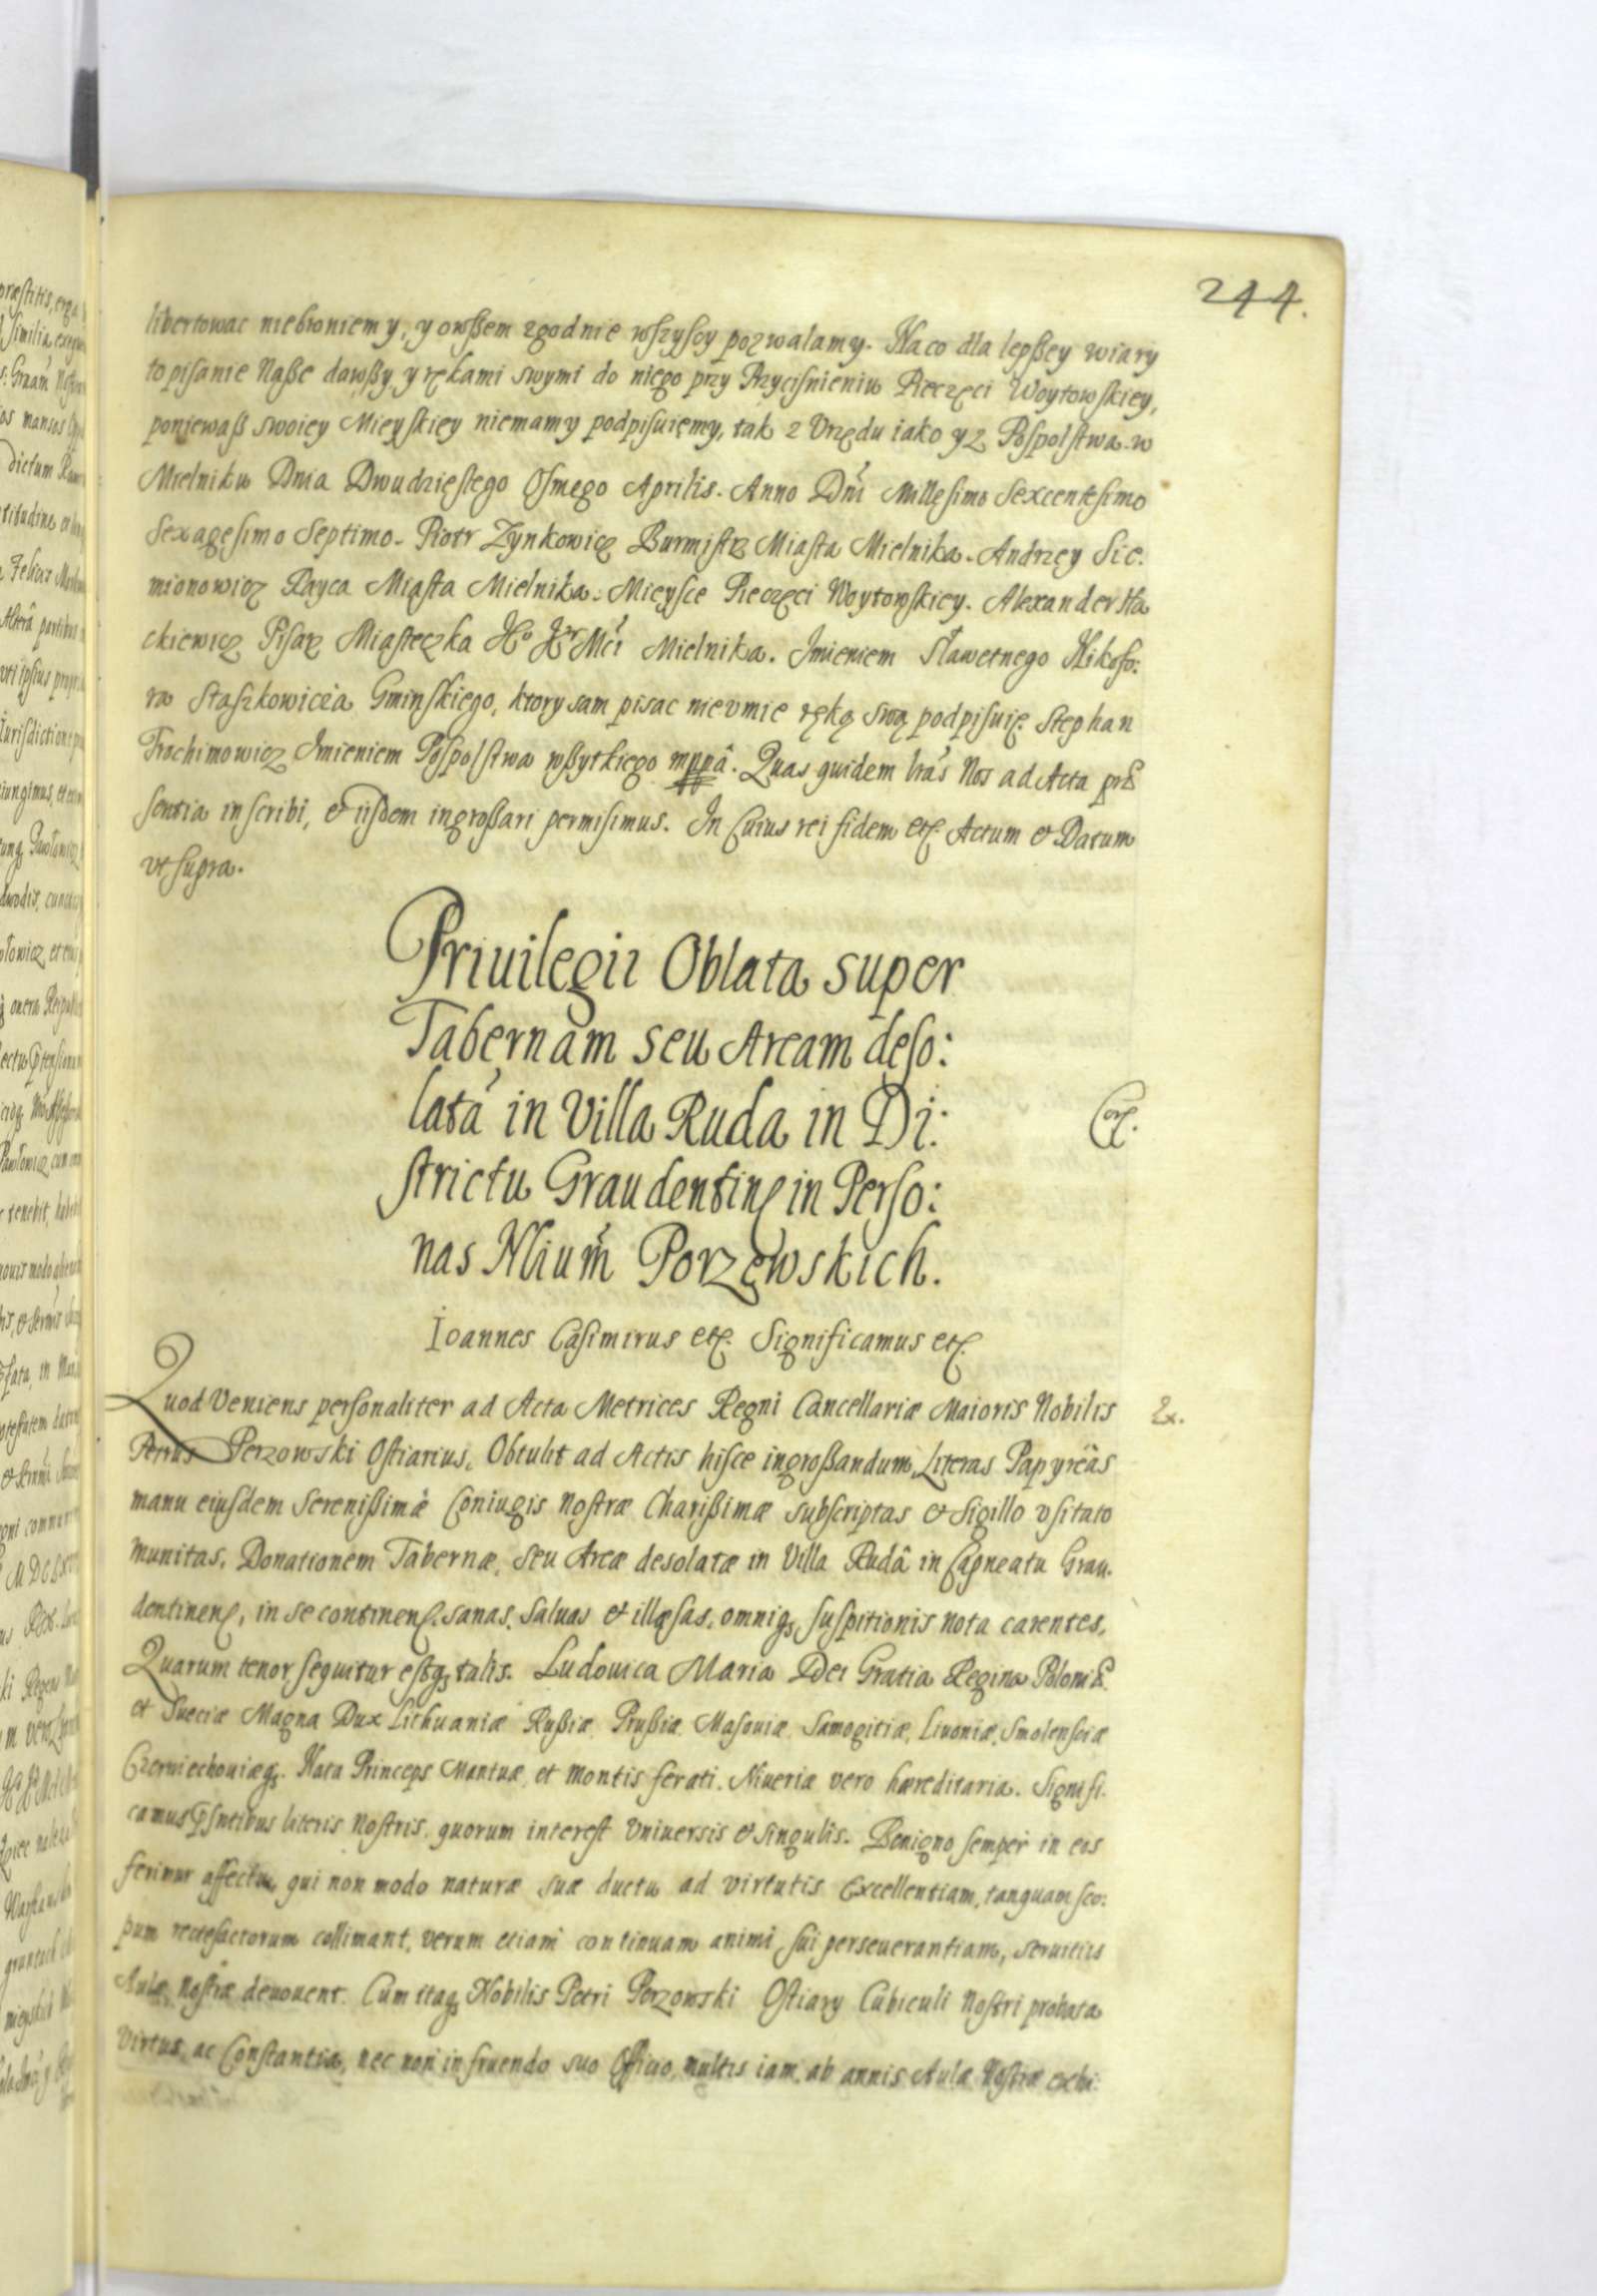 244.
libertowac niebroniemy, y owßem zgodnie wszyscy pozwalamy. Na co dla lepßey wiary
to pisanie Naße dawßy, y rękami swymi do niego przy Przycisnieniu Pieczęci Woytowskiey,
poniewaß swoiey Mieyskiey niemamy podpisuięmy, tak z Vrzędu iako y z Pospolstwa. w
Mielniku Dnia Dwudziestego Osmego Aprilis. Anno Dni Millesimo Sexcentesimo
Sexagesimo Septimo. Piotr Zynkowicz Burmistrz Miasta Mielnika. Andrzey Sie:
mionowicz Rayca Miasta Mielnika. Mieysce Pieczęci Woytowskiey. Alexander Ha
ckiewicz Pisarz Miasteczka Mci Mielnika. Imieniem Sławetnego Nikofo:
ra Staszkowicza Gminskiego, ktory sam pisac nie vmie ręką swą podpisuię. Stephan
Trochimowicz Imieniem Pospolstwa wßytkiego mppâ. Quas quidem lrãs Nos ad Acta præ
sentia inscribi, et iisdem ingroßari permisimus. In Cuius rei fidem etc. Actum et Datum
vt supra.
Priuilegii Oblata super
Tabernam seu Aream deso:
latã in Villa Ruda in Di:
strictu Graudentinen in Perso:
nas Nlium Porzęwskich.
Cor.
Ioannes Casimirus etc. Significamus etc.
Quod Veniens personaliter ad Acta Metrices Regni Cancellariæ Maioris Nobilis
Ex.
Petrus Perzowski Ostiarius, Obtulit ad Actis hisce ingroßandum, Literas Papyreas
manu eiusdem Serenißimæ Coniugis Nostræ Charißimæ subscriptas et Sigillo vsitato
munitas, Donationem Tabernæ, seu Areæ desolatæ in Villa Rudâ in Capneatu Grau:
dentinen, in se continen. sanas, saluas et illæsas, omniq suspitionis nota carentes,
Quarum tenor sequitur estq talis. Ludouica Maria Dei Gratia Regina Poloniæ
et Sueciæ Magna Dux Lithuaniæ Rußiæ, Prußiæ, Masouiæ, Samogitiæ, Liuoniæ, Smolensciæ
Czerniechouiæq. Nata Princeps Mantuæ, et Montis ferati. Niueriæ vero hæreditaria. Signifi:
camus pñtibus literis Nostris, quorum interest Vniuersis et singulis. Benigno semper in eos
ferimur affectu, qui non modo naturæ suæ ductu ad virtutis Excellentiam, tanquam sco:
pum rectefactorum collimant, verum etiam continuam animi sui perseuerantiam, seruitiis
Aulæ Nostræ deuouent. Cum itaq Nobilis Petri Perzowski Ostiary Cubiculi Nostri probata
Virtus, ac Constantia, nec non in fruendo suo Officio, multis iam ab annis Aulæ Nostræ exhi: